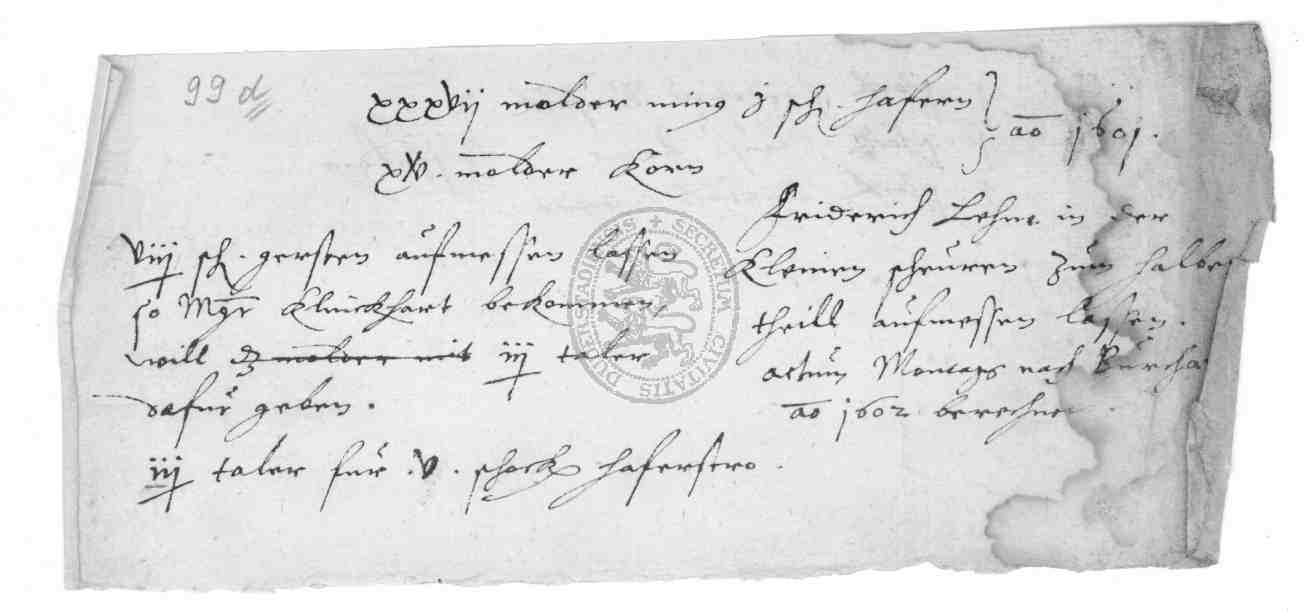 99 d
xxxvij molder min9 j sch. hafern
ao 1601.
xv. molder Korn
viij sch. gersten aufmessen lassen
so Mgr Klinckhart bekommen,
will dz molder mit iij taler
dafur geben.
iij taler fur .v. schock haferstro.
Friderich Lehne in der
Kleinen scheuren zum halben
theill aufmessen lassen.
actum Montags nach Burcha
ao 1602 berechnet.
SECRETUM CIVITATIS DUDERSTADIENSIS